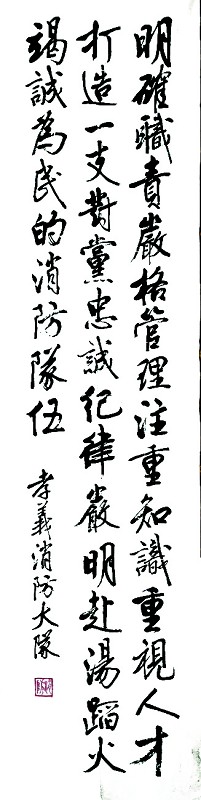 明確職責嚴格管理注重知識重視人才
打造一支對黨忠誠紀律嚴明赴湯蹈火
竭誠為民的消防隊伍
孝義消防大隊